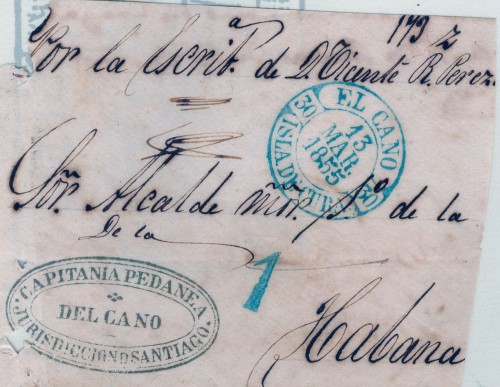 179 2
Por la Escrib.ª de D. Vicente R. Perez.
EL CANO
30
13
MAR.
1855
30
ISLA DE CUBA
Sõr. Alcalde mõr. 1º de la
De la
1
CAPITANIA PEDANEA
DEL CANO
JURISDICCION D SANTIAGO.
Habana